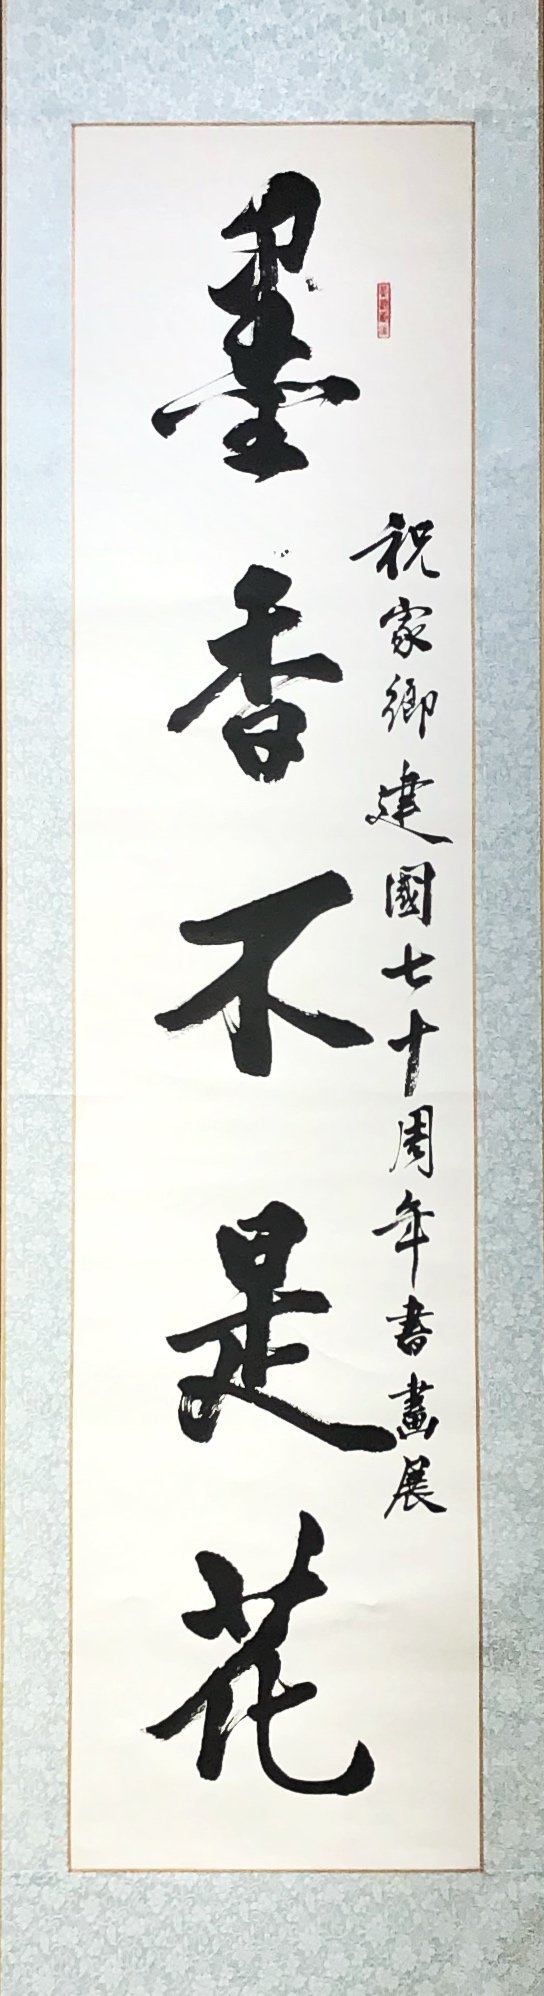 祝家鄉建國七十周年書畫展
墨香不是花